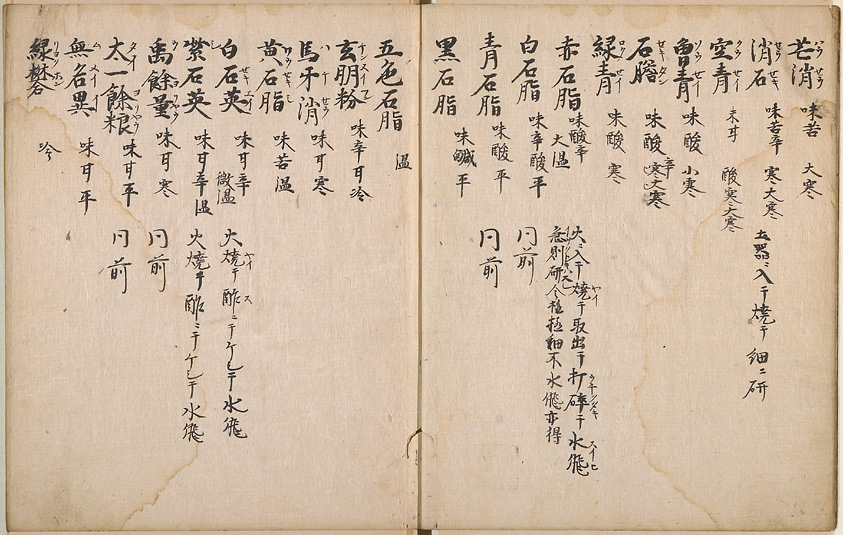 芒消 味苦 大寒
消石 味苦辛 寒大寒 土器ニ入テ燒テ細ニ研
空青 味甘酸 寒大寒
曽青 味酸 小寒
石膽 味酸辛 寒大寒
緑青 味酸 寒
赤石脂 味酸辛 大温 火ニ入テ燒テ取出テ打碎テ水飛
急則研令極細不水飛亦得
白石脂 味辛酸平 同前
青石脂 味酸平 同前
黒石脂 味鹹平
五色石脂 温
玄明粉 味辛甘冷
馬牙消 味甘寒
黄石脂 味苦温
白石英 味甘辛 微温 火燒テ酢ニテケシテ水飛
紫石英 味甘辛温 火燒テ酢ニテケシテ水飛
禹餘量 味甘寒 同前
太一餘粮 味甘平 同前
無名異 味甘平
緑礬 冷